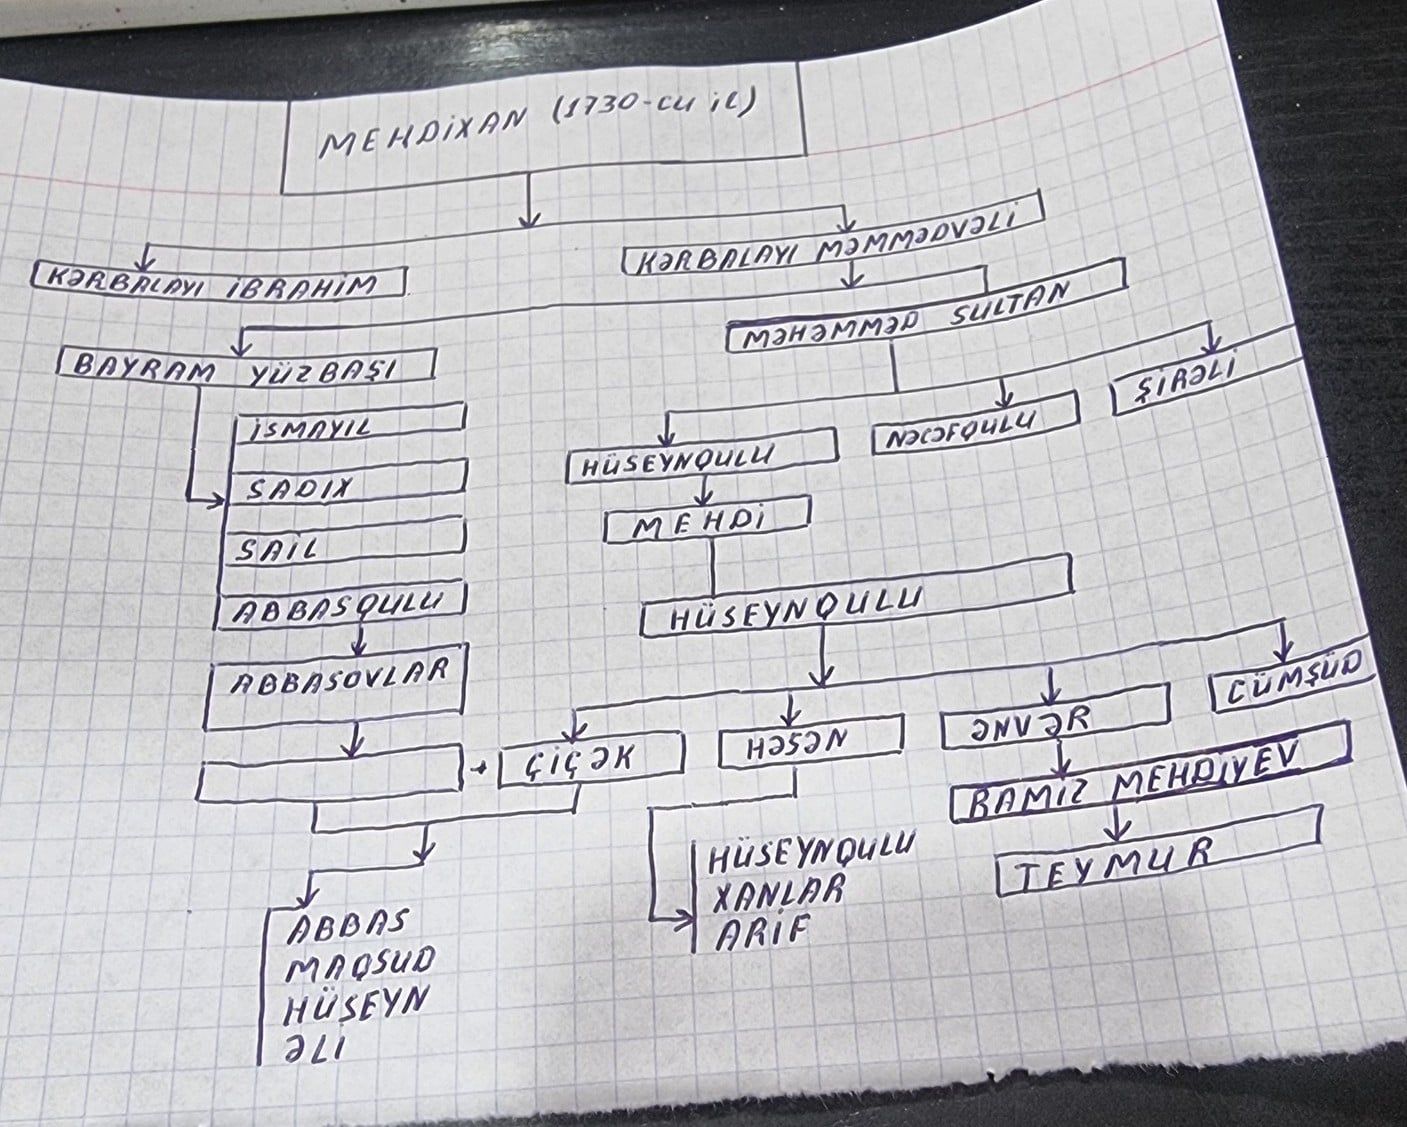 MEHDİXAN (1730-CU İL)
KƏRBALAYI İBRAHİM
KƏRBALAYI MƏMMƏDVƏLİ
BAYRAM YÜZBAŞI
MƏHƏMMƏD SULTAN
İSMAYIL
SADIX
SAİL
ABBASQULU
ABBASOVLAR
HÜSEYNQULU
NƏCƏFQULU
ŞİRƏLİ
MEHDİ
HÜSEYNQULU
+ ÇİÇƏK
HƏSƏN
ƏNVƏR
CÜMŞÜD
RAMİZ MEHDİYEV
TEYMUR
ABBAS
MAQSUD
HÜSEYN
ƏLİ
HÜSEYNQULU
XANLAR
ARİF